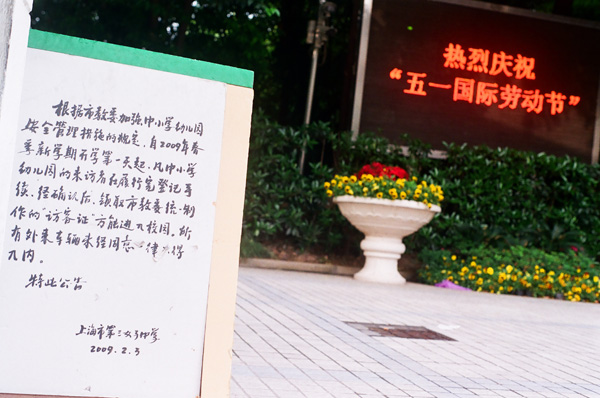 根据市教委加强中小学幼儿园
安全管理措施的规定,自2009年春
季新学期开学第一天起,凡中小学
幼儿园的来访者在履行完登记手
续、经确认后,领取市教委统一制
作的"访客证"方能进入校园。所
有外来车辆未经同意一律不得
入内。
特此公告
上海市第三女子中学
2009.2.3
热烈庆祝
“五一国际劳动节”